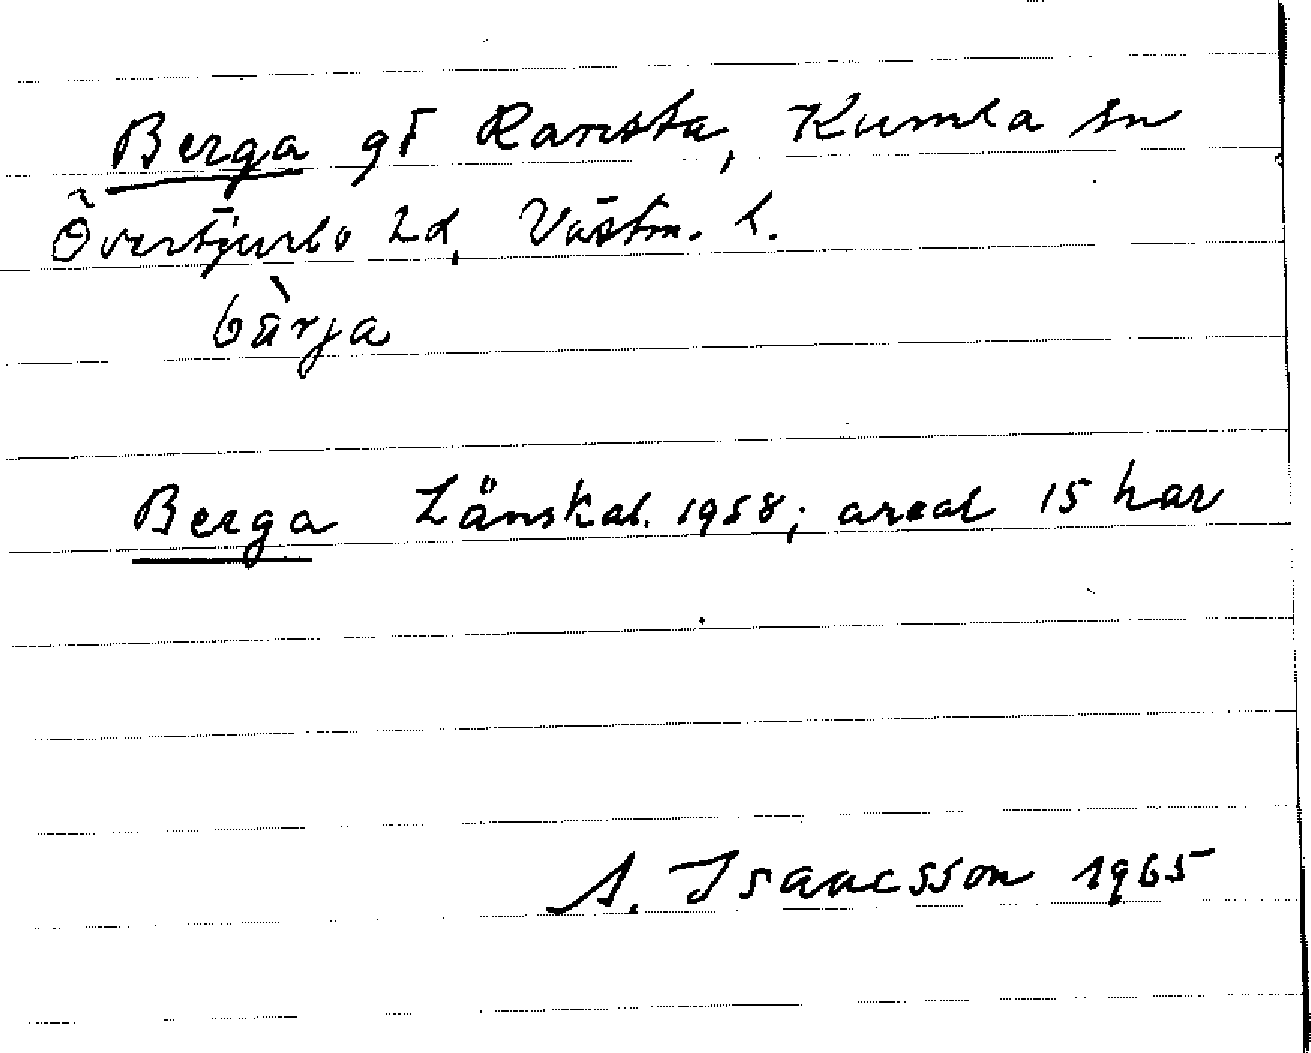 Berga gd Ransta, Kumla sn
Övertjurbo hd, Västm. l.
bä̀rja
Berga Länskal. 1958; areal 15 har
A. Isaacsson 1965